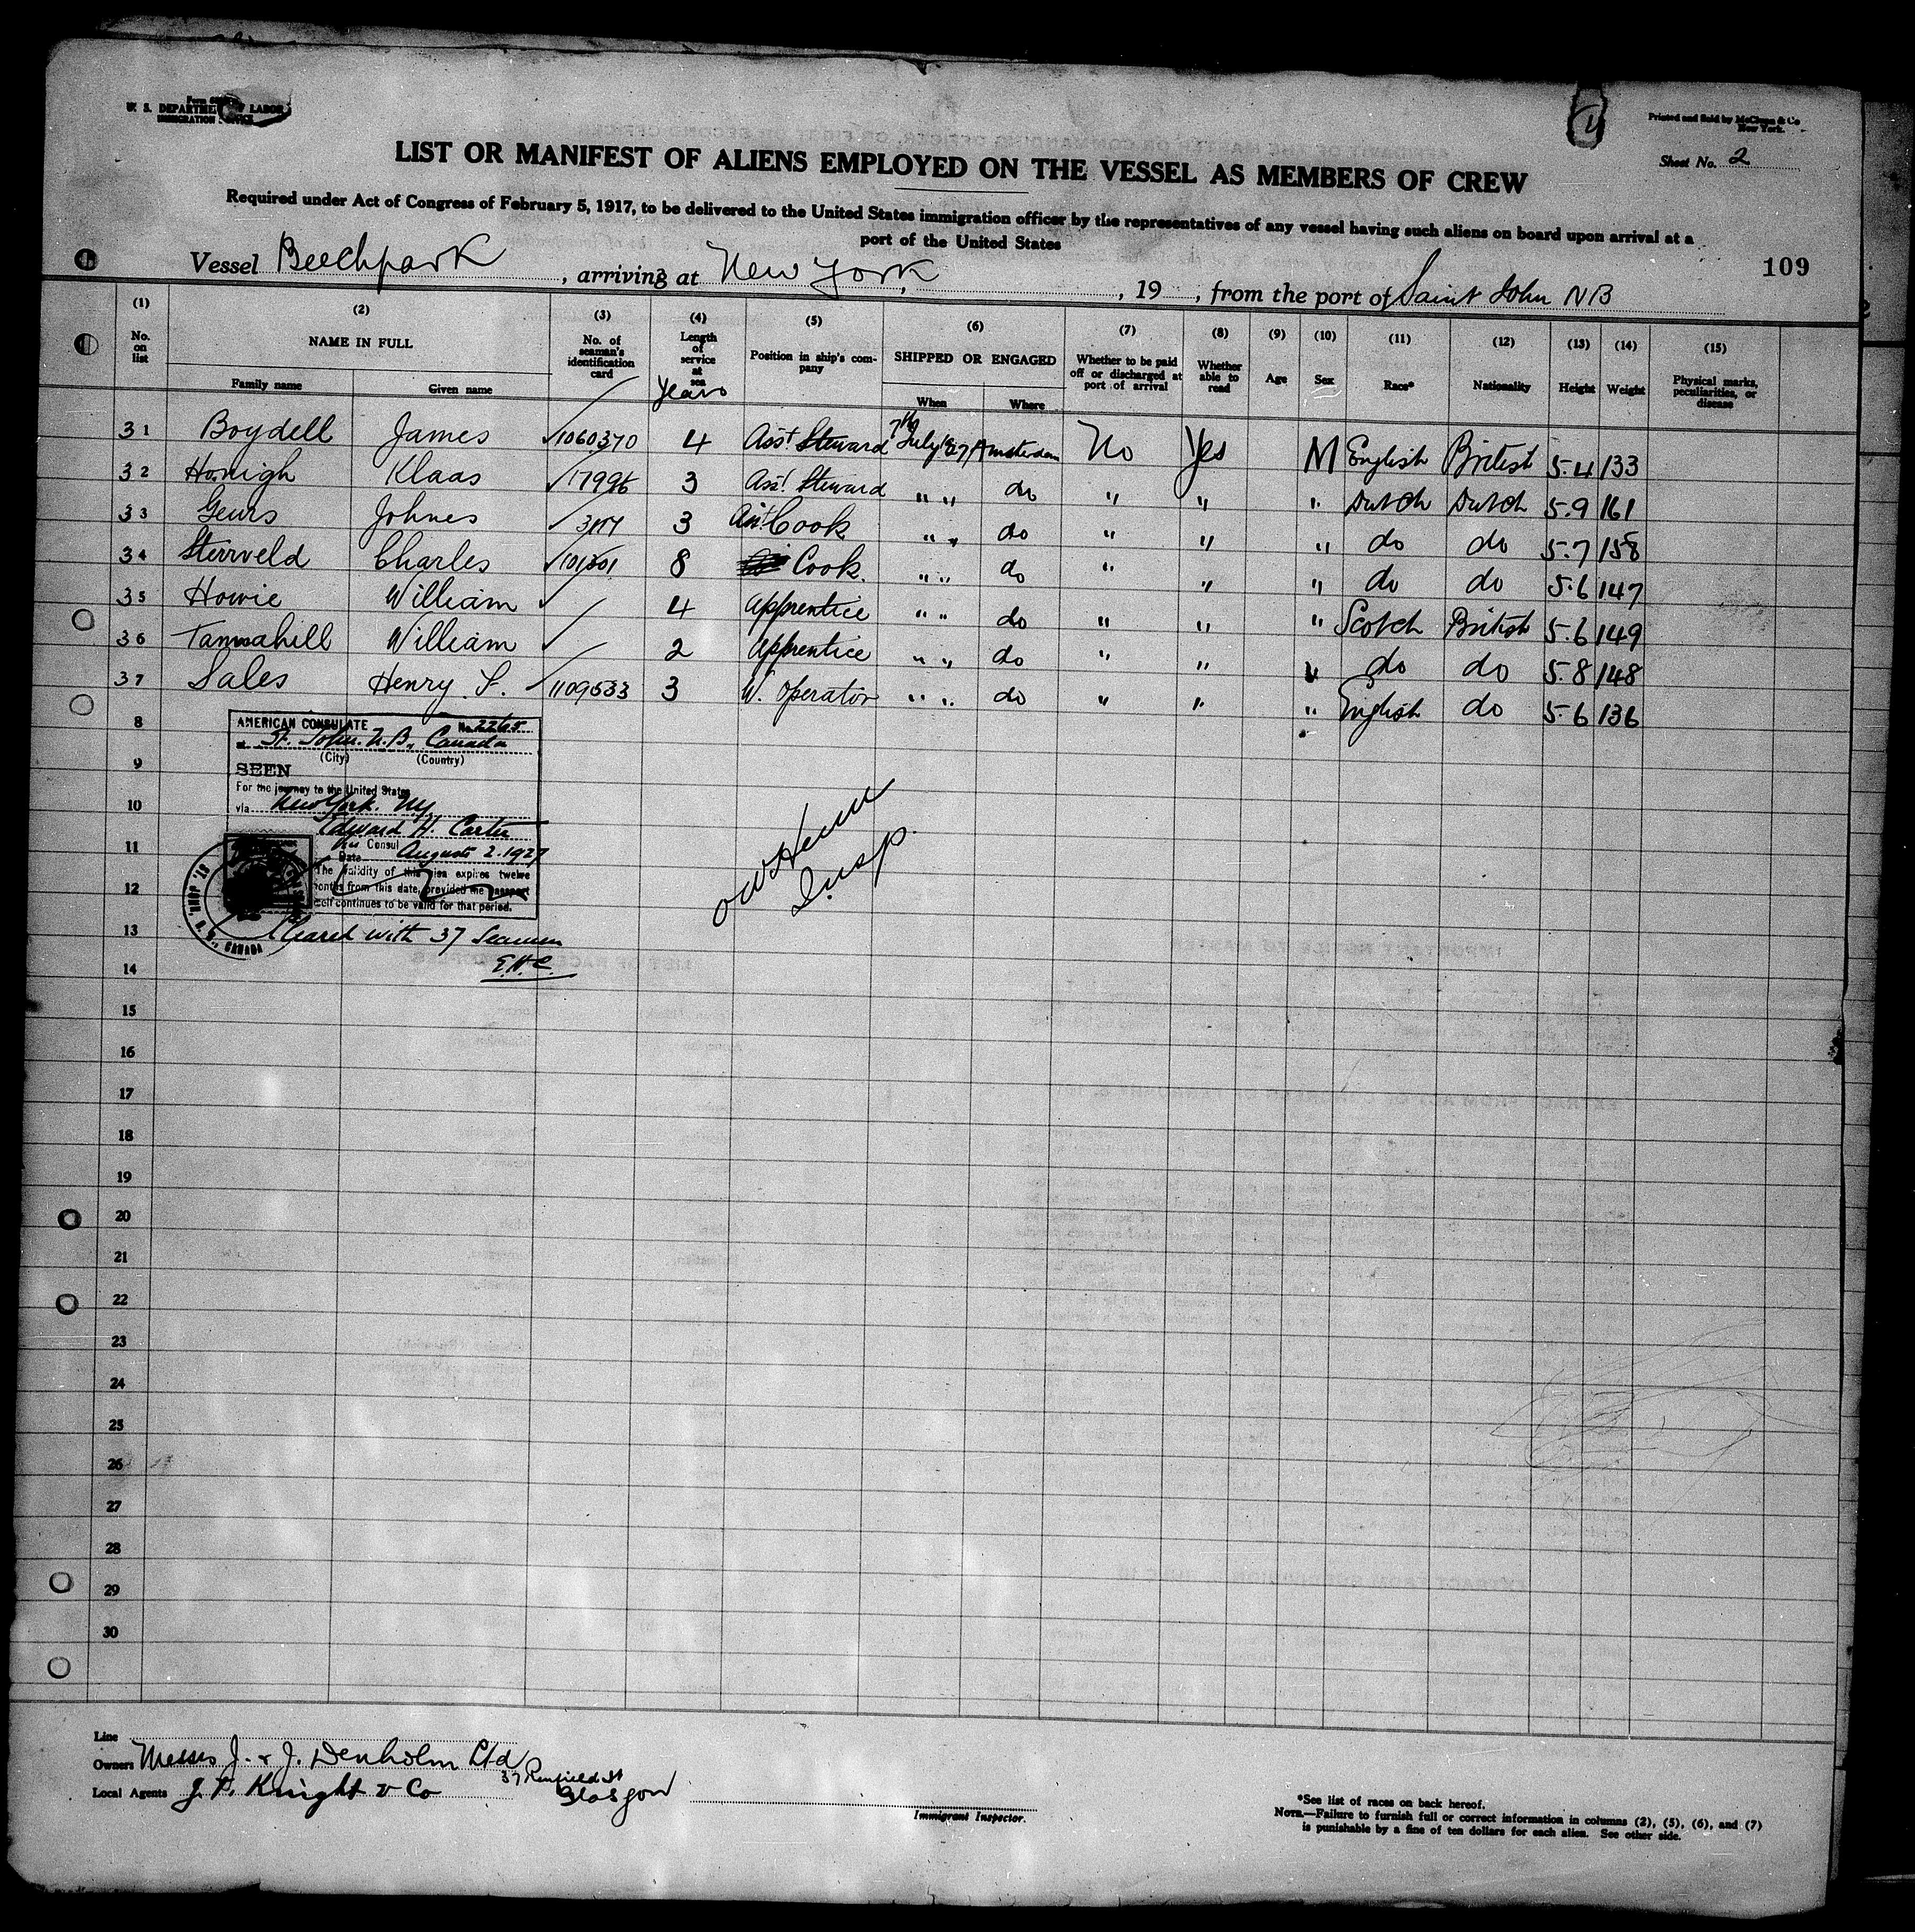 U. S. DEPARTMENT OF LABOR
IMMIGRATION SERVICE
Printed and Sold by McClunn & Co
New York.
Sheet No. 2
LIST OR MANIFEST OF ALIENS EMPLOYED ON THE VESSEL AS MEMBERS OF CREW
Required under Act of Congress of February 5, 1917, to be delivered to the United States immigration officer by the representatives of any vessel having such aliens on board upon arrival at a
port of the United States
109
Vessel Beechpark, arriving at New York, 19 , from the port of Saint John NB
(1) (2) (3) (4) (5) (6) (7) (8) (9) (10) (11) (12) (13) (14) (15)
No. on list NAME IN FULL No. of seaman's identification card Length of service at sea Position in ship's company SHIPPED OR ENGAGED Whether to be paid off or discharged at port of arrival Whether able to read Age Sex Race* Nationality Height Weight Physical marks, peculiarities, or disease
Family name Given name Years When Where
31 Boydell James 1060370 4 Asst Steward 7th July 1927 Amsterdam No Yes M English British 5.4 133
32 Honigh Klaas 17996 3 Asst Steward " " do " " " Dutch Dutch 5.9 161
33 Geurs Johnes 3 Asst Cook " " do " " " do do 5.7 158
34 Sterrveld Charles 8 Cook. " " do " " " do do 5.6 147
35 Howie William 4 Apprentice " " do " " " Scotch British 5.6 149
36 Tannahill William 2 Apprentice " " do " " " do do 5.8 148
37 Sales Henry. S. 1109533 3 W. Operator " " do " " " English do 5.6 136
8
AMERICAN CONSULATE No. 2265
at St. John. N.B., Canada
(City) (Country)
9
SEEN
For the journey to the United States
10
via New York. Ny.
Edward H. Carter
11
Consul
Date August 2. 1927
The validity of this visa expires twelve
12
months from this date, provided the passport
itself continues to be valid for that period.
ST. JOHN, N. B., CANADA
Insp.
13
Cleared with 37 Seamen
E.H.C.
14
15
16
17
18
19
20
21
22
23
24
25
26
27
28
29
30
Line
Owners Messrs J. & J. Denholm Ltd
37 Renfield St
Glasgow
Local Agents J. T. Knight & Co
Immigrant Inspector.
*See list of races on back hereof.
NOTE.—Failure to furnish full or correct information in columns (2), (5), (6), and (7)
is punishable by a fine of ten dollars for each alien. See other side.